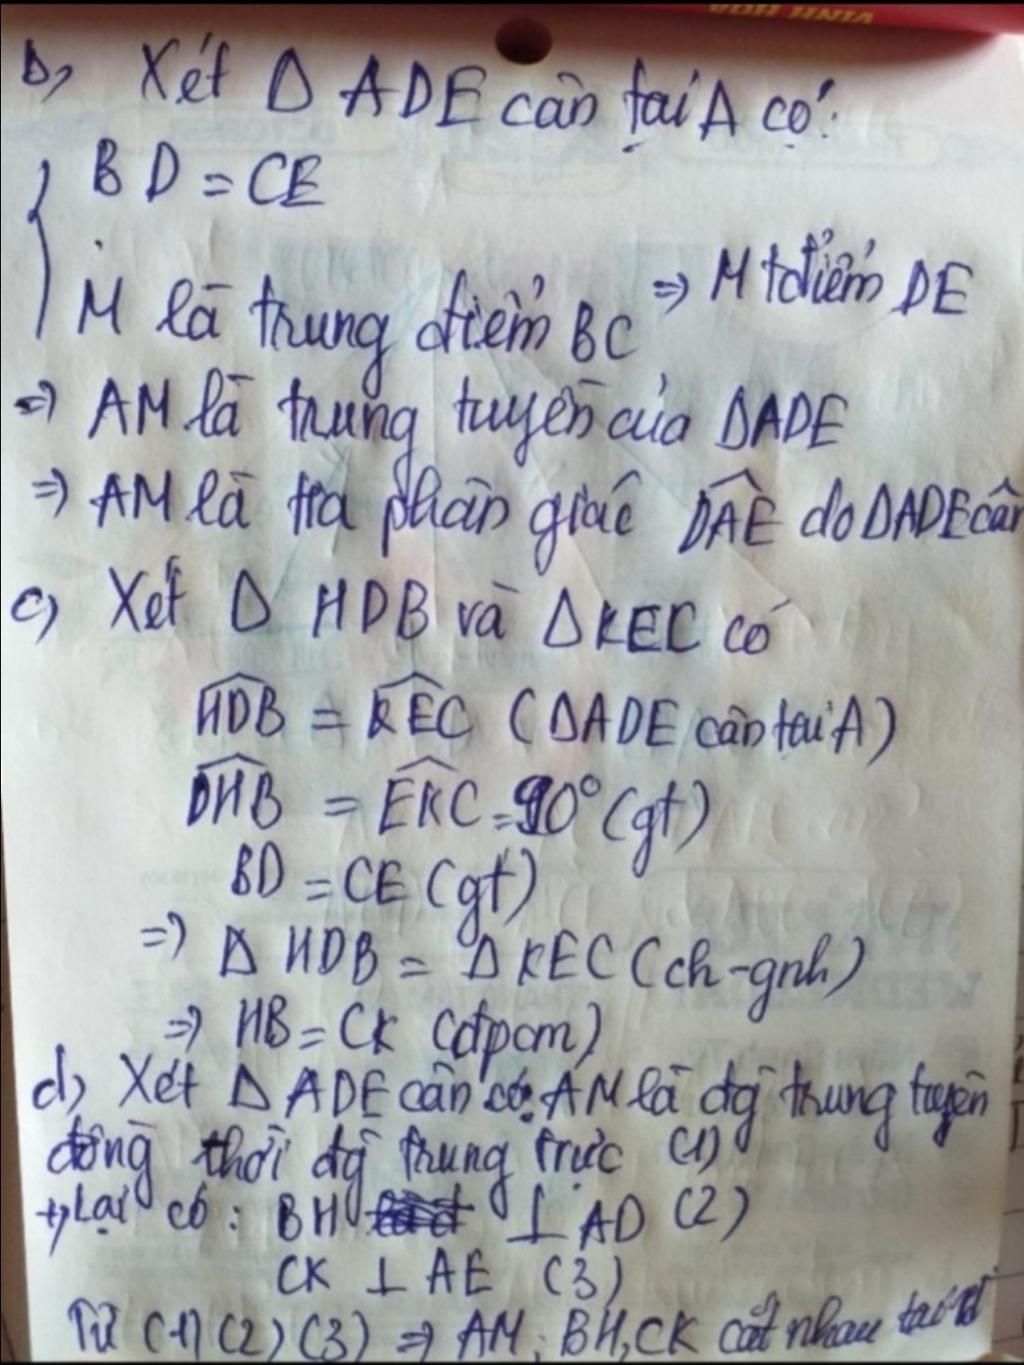 b, Xét Δ ADE cân tại A có:
BD = CE
M là trung điểm BC => M tđiểm DE
=> AM là trung tuyến của ΔADE
=> AM là tia phân giác \widehat{DAE} do ΔADE cân
c, Xét Δ HDB và ΔKEC có
\widehat{HDB} = \widehat{KEC} (ΔADE cân tại A)
\widehat{DHB} = \widehat{EKC} = 90° (gt)
BD = CE (gt)
=> Δ HDB = Δ KEC (ch-gnh)
=> HB = CK (đpcm)
d, Xét Δ ADE cân có: AM là đg trung tuyến
đồng thời đg trung trực (1)
+, Lại có: BH ⊥ AD (2)
CK ⊥ AE (3)
Từ (1) (2) (3) => AM; BH, CK cắt nhau tại